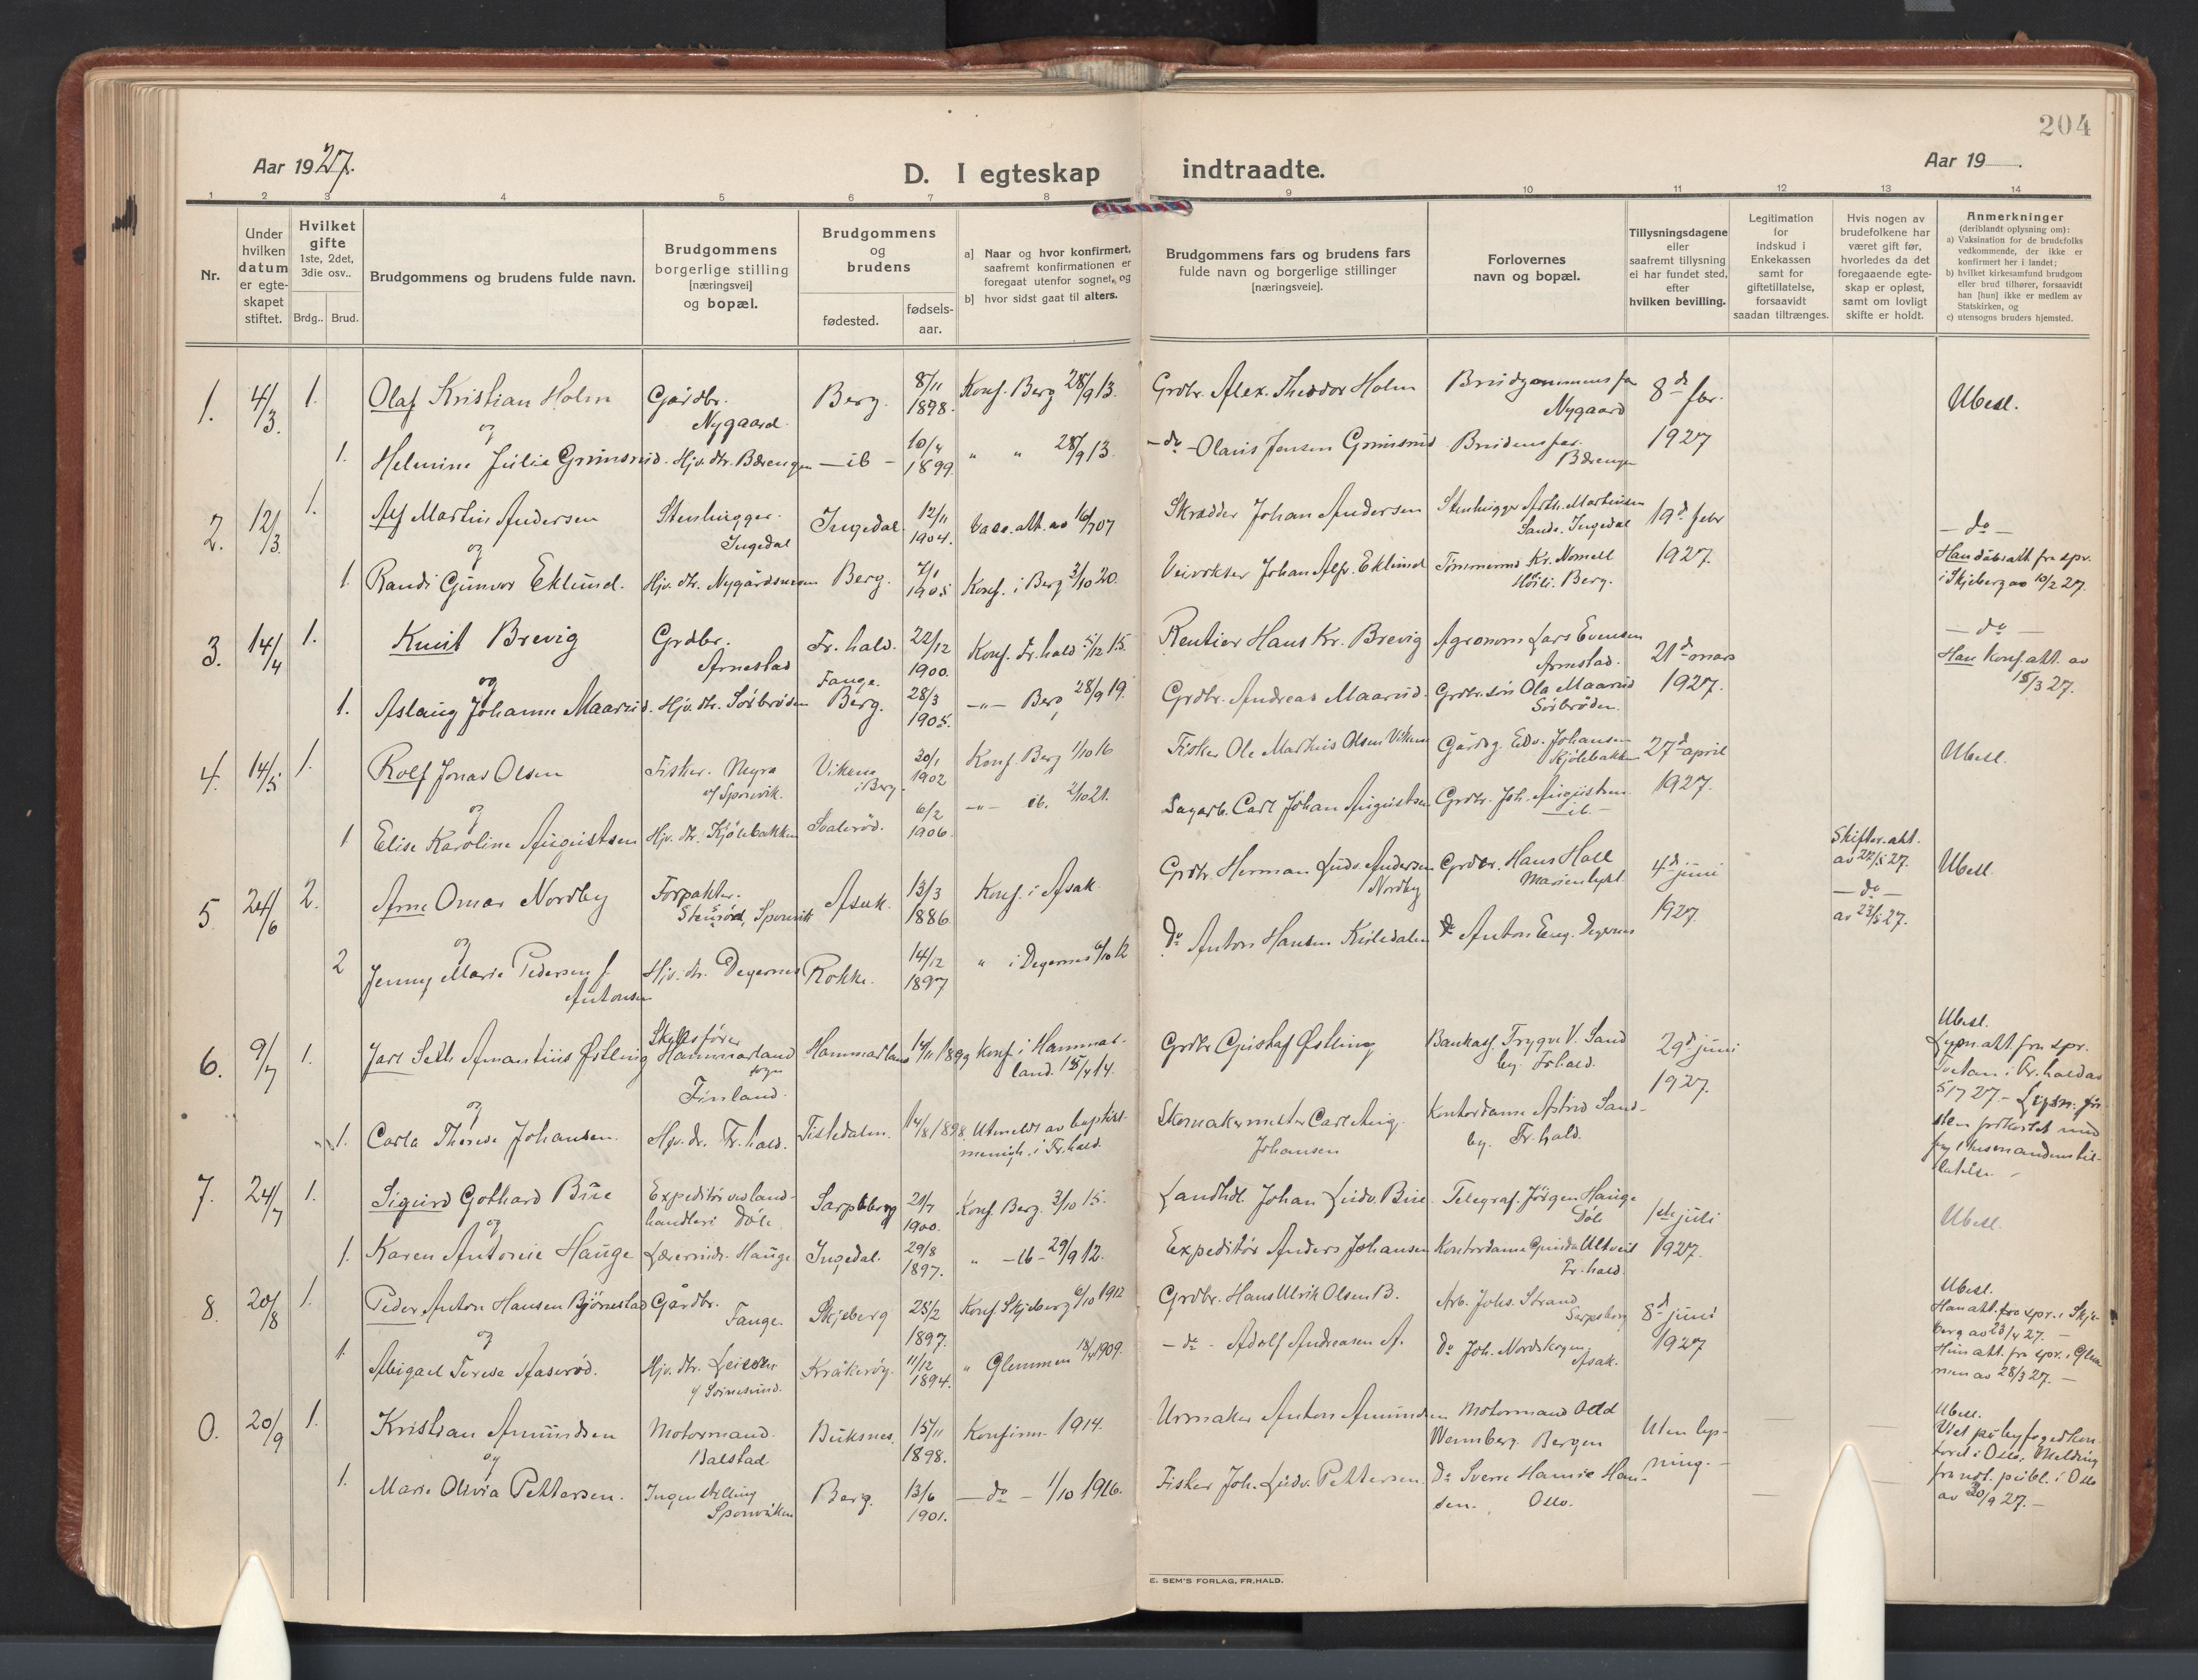 204
Aar 1927.
D. I egteskap indtraadte.
Aar 19 .
1 2 3 4 5 6 7 8 9 10 11 12 13 14
Nr.
Under hvilken datum er egte-skapet stiftet.
Hvilket gifte 1ste, 2det, 3die osv..
Brdg.. Brud.
Brudgommens og brudens fulde navn.
Brudgommens borgerlige stilling [næringsvei] og bopæl.
Brudgommens og brudens
fødested.
fødsels-aar.
a] Naar og hvor konfirmert, saafremt konfirmationen er foregaat utenfor sognet, og
b] hvor sidst gaat til alters.
Brudgommens fars og brudens fars fulde navn og borgerlige stillinger [næringsveie].
Forlovernes navn og bopæl.
Tillysningsdagene eller saafremt tillysning ei har fundet sted, efter hvilken bevilling.
Legitimation for indskud i Enkekassen samt for giftetillatelse, forsaavidt saadan tiltrænges.
Hvis nogen av brudefolkene har været gift før, hvorledes da det foregaaende egte-skap er opløst, samt om lovligt skifte er holdt.
Anmerkninger (deriblandt oplysning om):
a) Vaksination for de brudefolks vedkommende, der ikke er konfirmert her i landet;
b) hvilket kirkesamfund brudgom eller brud tilhører, forsaavidt han [hun] ikke er medlem av Statskirken, og
c) utensogns bruders hjemsted.
1. 4/3. 1. Olaf Kristian Holm Gårdbr. Nygaard Berg. 8/11 1898. Konf. Berg 28/9 13. Grdbr. Alex. Theodor Holm Brudgommens far Nygaard 8de fbr. Ubesl.
og
1. Helmine Julie Grimsrud. Hjv. dtr. Bærengen - ib - 10/4 1899 " " 28/9 13. - do - Olavis Jensen Grimsrud Brudens far. Bærengen 1927
2. 12/3. 1. Alf Martin Andersen Stenhugger. Ingedal Ingedal. 12/11 1904. Vacc. att. av 16/7 07 Skrædder Johan Andersen Stenhugger Arth. Martinsen Sande. Ingedal 19d febr - do -
og
1 Randi Gunvor Eklund. Hjv. dtr. Nygårdsmosen Berg. 7/1 1905 Konf. i Berg 3/10 20. Veivokter Johan Alfr. Eklund Tømmerm. Kr. Nomell Höili. Berg. 1927. Han dåbsatt. fra spr. i Skjeberg av 10/2 27.
3. 14/4 1. Knut Brevig Grdbr. Arnestad Fr. hald. 22/12 1900. Konf. Fr.hald 5/12 15. Rentier Hans Kr. Brevig Agronom Lars Evensen Arnestad. 21d mars - do -
og
1. Aslaug Johanne Maarud. Hjv. dtr. Sörbröden Fange. Berg. 28/3 1905. -"- Berg 28/9 19. Grdbr. Andreas Maarud. Grdbr. sön Ola Maarud Sörbröden. 1927. Han konf. att. av 15/3 27.
4. 14/5 1. Rolf Jonas Olsen Fisker. Myra v/ Sponvik. Viken i Berg. 30/1 1902 Konf. Berg 1/10 16 Fisker Ole Markus Olsen Viken Gårdbg. Edv. Johansen Kjölebakken 27d april Ubesl.
og
1 Elise Karoline Augustsen Hjv. dtr. Kjölebakken Svaleröd. 6/2 1906. -"- ib. 2/10 21. Sagarb. Carl Johan Augustsen Grdbr. Joh. Augustsen - ib - 1927.
5 24/6 2. Arne Omar Nordby Forpakter. Stensröd, Sponvik Asak. 13/3 1886 Konf. i Asak. Grdbr. Herman Ludv. Andersen Nordby Grdbr. Hans Holl Marienlyst 4d juni Skifter. att. av 27/5 27. Ubesl.
og
2 Jenny Marie Pedersen f. Antonsen Hjv. dtr. Degernes Rokke. 14/12 1897 " i Degernes 6/10 12 do Anton Hansen Kjöledalen do Anton Eng. Degernes 1927. - do - av 23/5 27.
6. 9/7 1. Jarl Seth Amantius Østling Skibsfører Hammarland sogn Finland. Hammarland 14/11 1899 Konf. i Hammarland. 15/4 14. Grdbr Gustaf Østling Bankass. Trygve V. Sandby. Frhald. 29d juni Ubesl. Lysn. att. fra spr.
og
1. Carla Therese Johansen. Hjv. dr. Fr. hald. Tistedalen. 14/8 1898. Utmeldt av baptistmenigh. i Fr.hald. Skomakermester Carl Aug. Johansen Kontordame Astrid Sandby. Fr. hald. 1927. i Fr. hald av 5/7 27. -
7. 24/7 1. Sigurd Gothard Büe Expeditör ved landhandleri Döle Sarpsborg 21/7 1900. Konf. Berg. 3/10 15. Landhdl. Johan Ludv. Büe Telegraf. Jörgen Hauge Döle 1ste juli Ubesl.
og
1. Karen Antonie Hauge Lærerinde. Hauge Ingedal. 29/8 1897. " - ib - 29/9 12. Expeditör Anders Johansen Kontordame Gunda Ultveit Fr. hald. 1927.
8. 20/8 1. Peder Anton Hansen Bjørnestad Gårdbr. Fange. Skjeberg 25/2 1897. Konf. Skjeberg 6/10 1912 Grdbr. Hans Ulrik Olsen B. Arb. Johs. Strand Sarpsborg 8d juni Ubesl. Han att. fra spr. i Skjeberg av 23/4 27. -
og
1 Abigael Terese Aaseröd. Hjv. dtr. Kråkeröy. 11/12 1894. " Glemmen 18/4 1909. - do - Adolf Andreasen A. do Joh. Nordskogen Asak. 1927 Hun att. fra spr. i Glemmen av 28/3 27. -
0. 20/9 1. Kristian Amundsen Motormand. Balstad Buksnes. 15/11 1898. Konfirm. 1914. Urmaker Anton Amundsen Motormand Odd Wennberg. Bergen Uten lysning. - Ubesl. Viet på byfogedkontoret i Oslo. Melding
og
1. Marie Olivia Pettersen. Ingen stilling Sponviken Berg. 13/6 1901. - do - 1/10 1916. Fisker Joh. Ludv. Pettersen. do Sverre Hansen. Oslo. fra not. publ. i Oslo av 20/9 27. -
E. SEM'S FORLAG, FR.HALD.